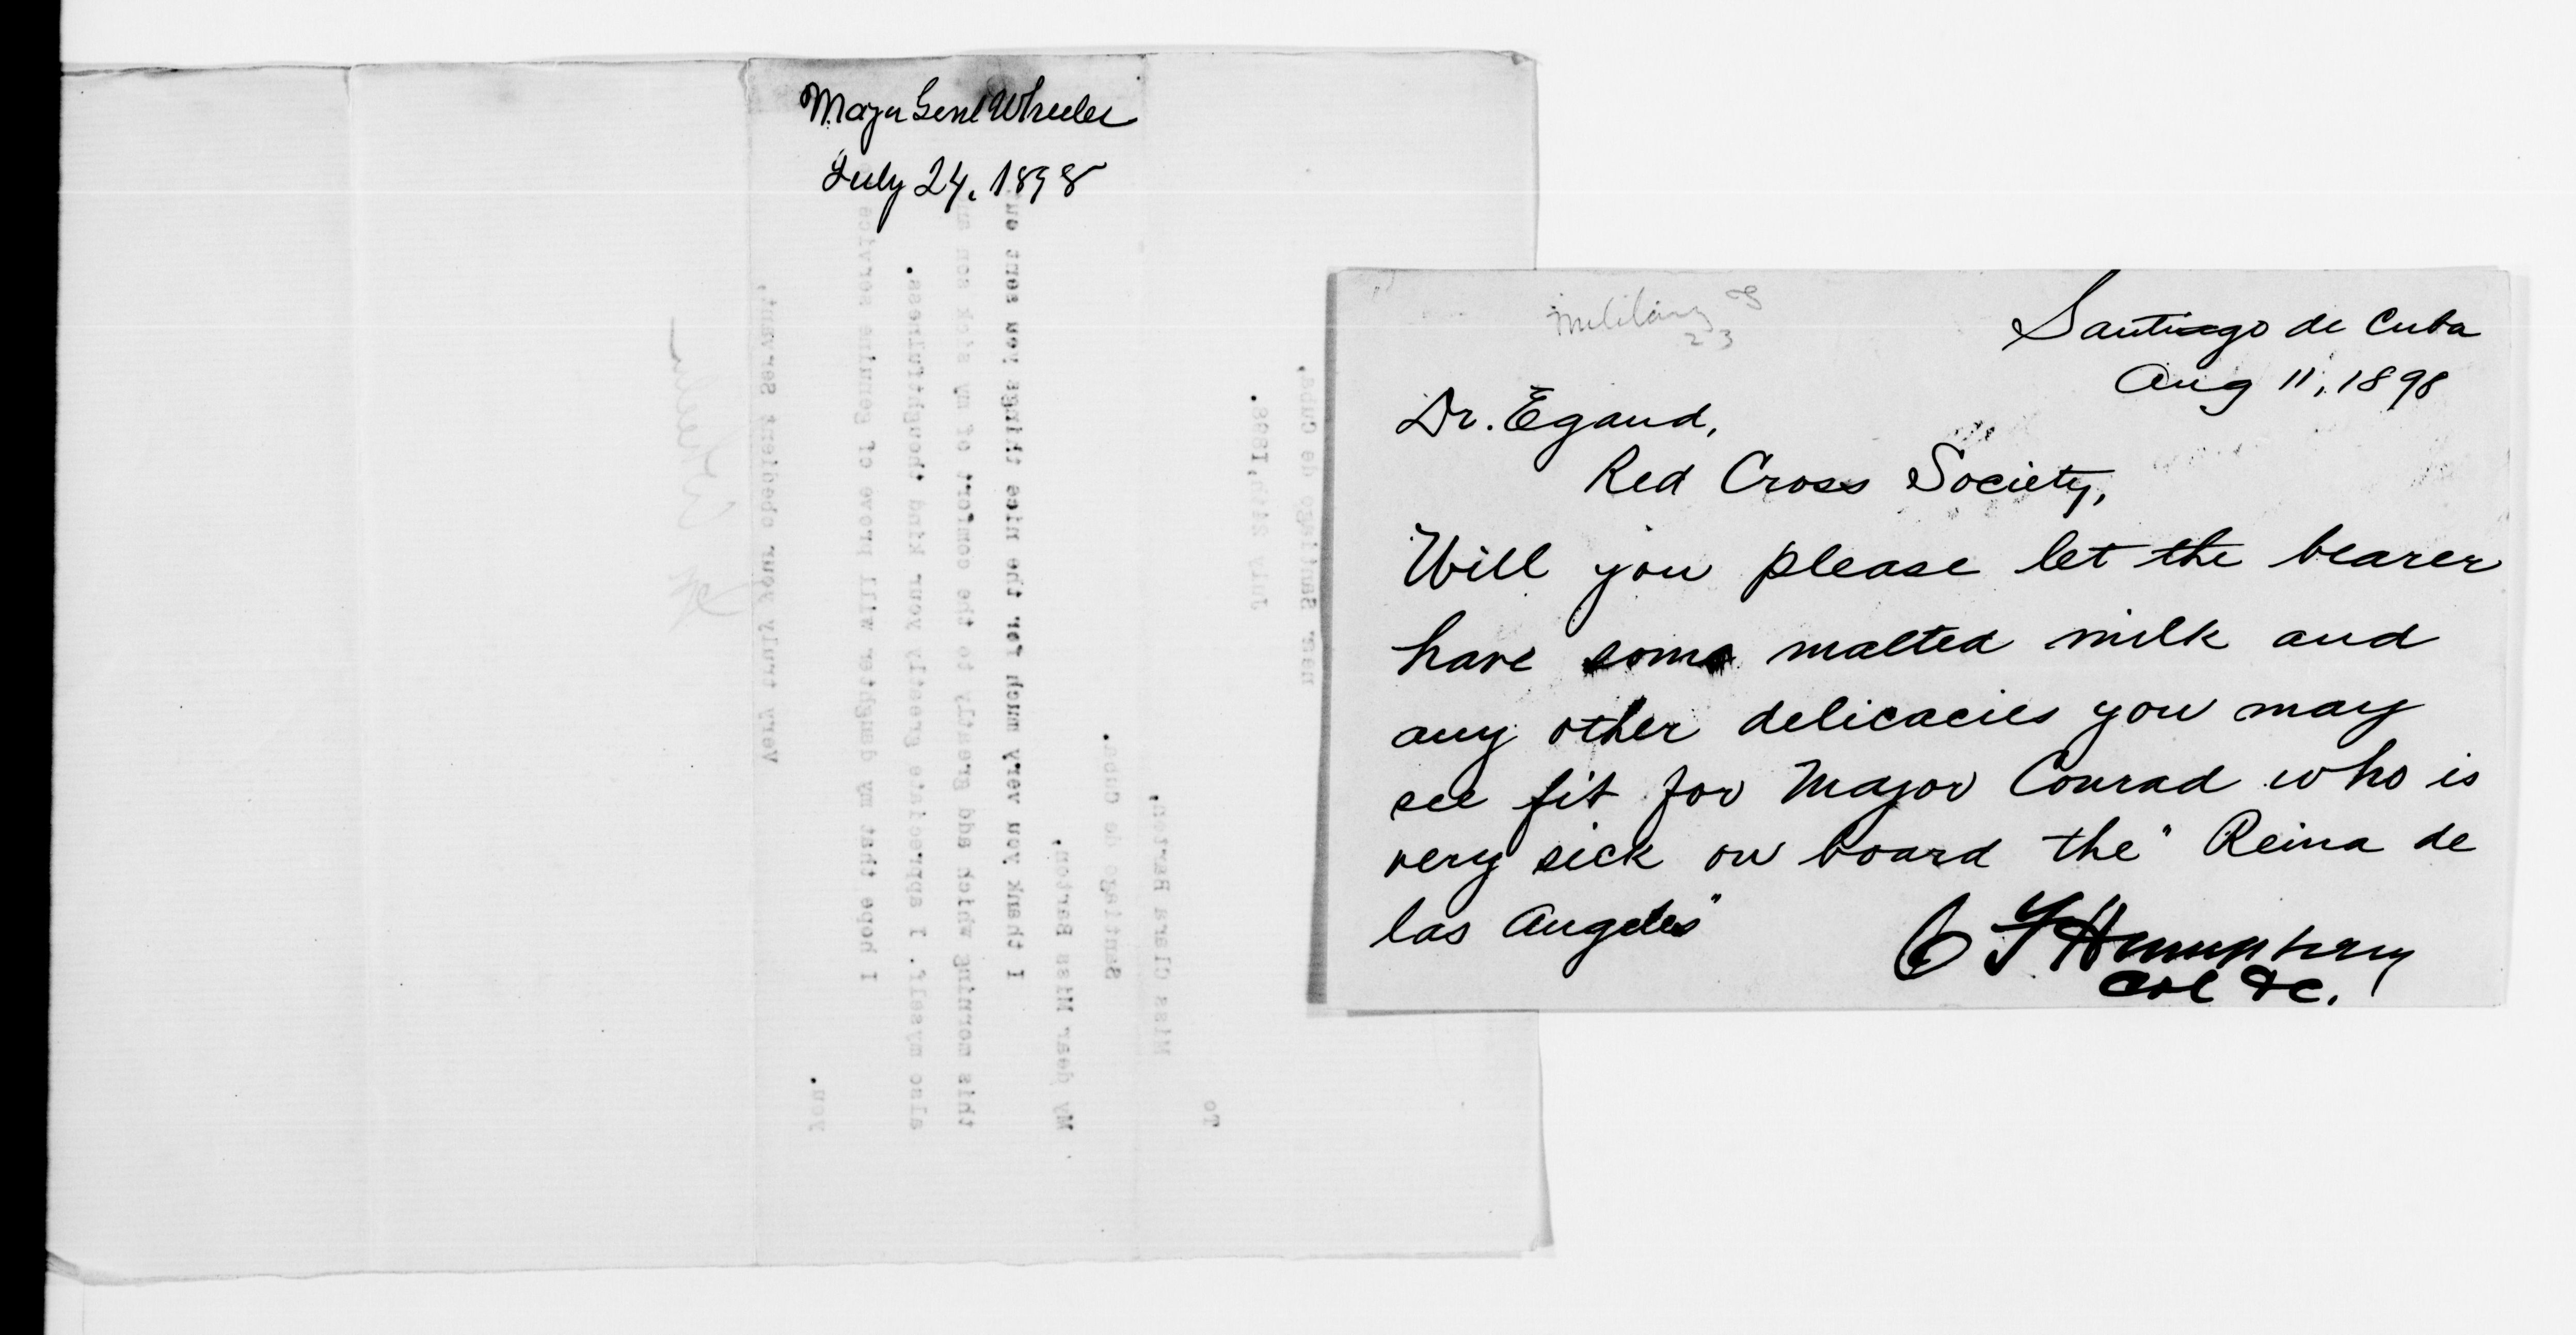 Major Genl Wheeler
July 24. 1898
near Santiago de Cuba,
July 24th, 1898.
To
Miss Clara Barton,
Santiago de Cuba.
My dear Miss Barton,
I thank you very much for the nice things you sent
this morning which add greatly to the comfort of my sick son
also myself. I appreciate greatly your kind thoughtfulness.
I hope that my daughter will prove of genuine service
you.
Very truly your obedient Servant,
Wheeler
Military
23
Santiago de Cuba
Aug 11, 1898
Dr. Egand,
Red Cross Society,
Will you please let the bearer
have some malted milk and
any other delicacies you may
see fit for Major Conrad who is
very sick on board the "Reina de
los Angeles"
C F Humphrey
Col &c.